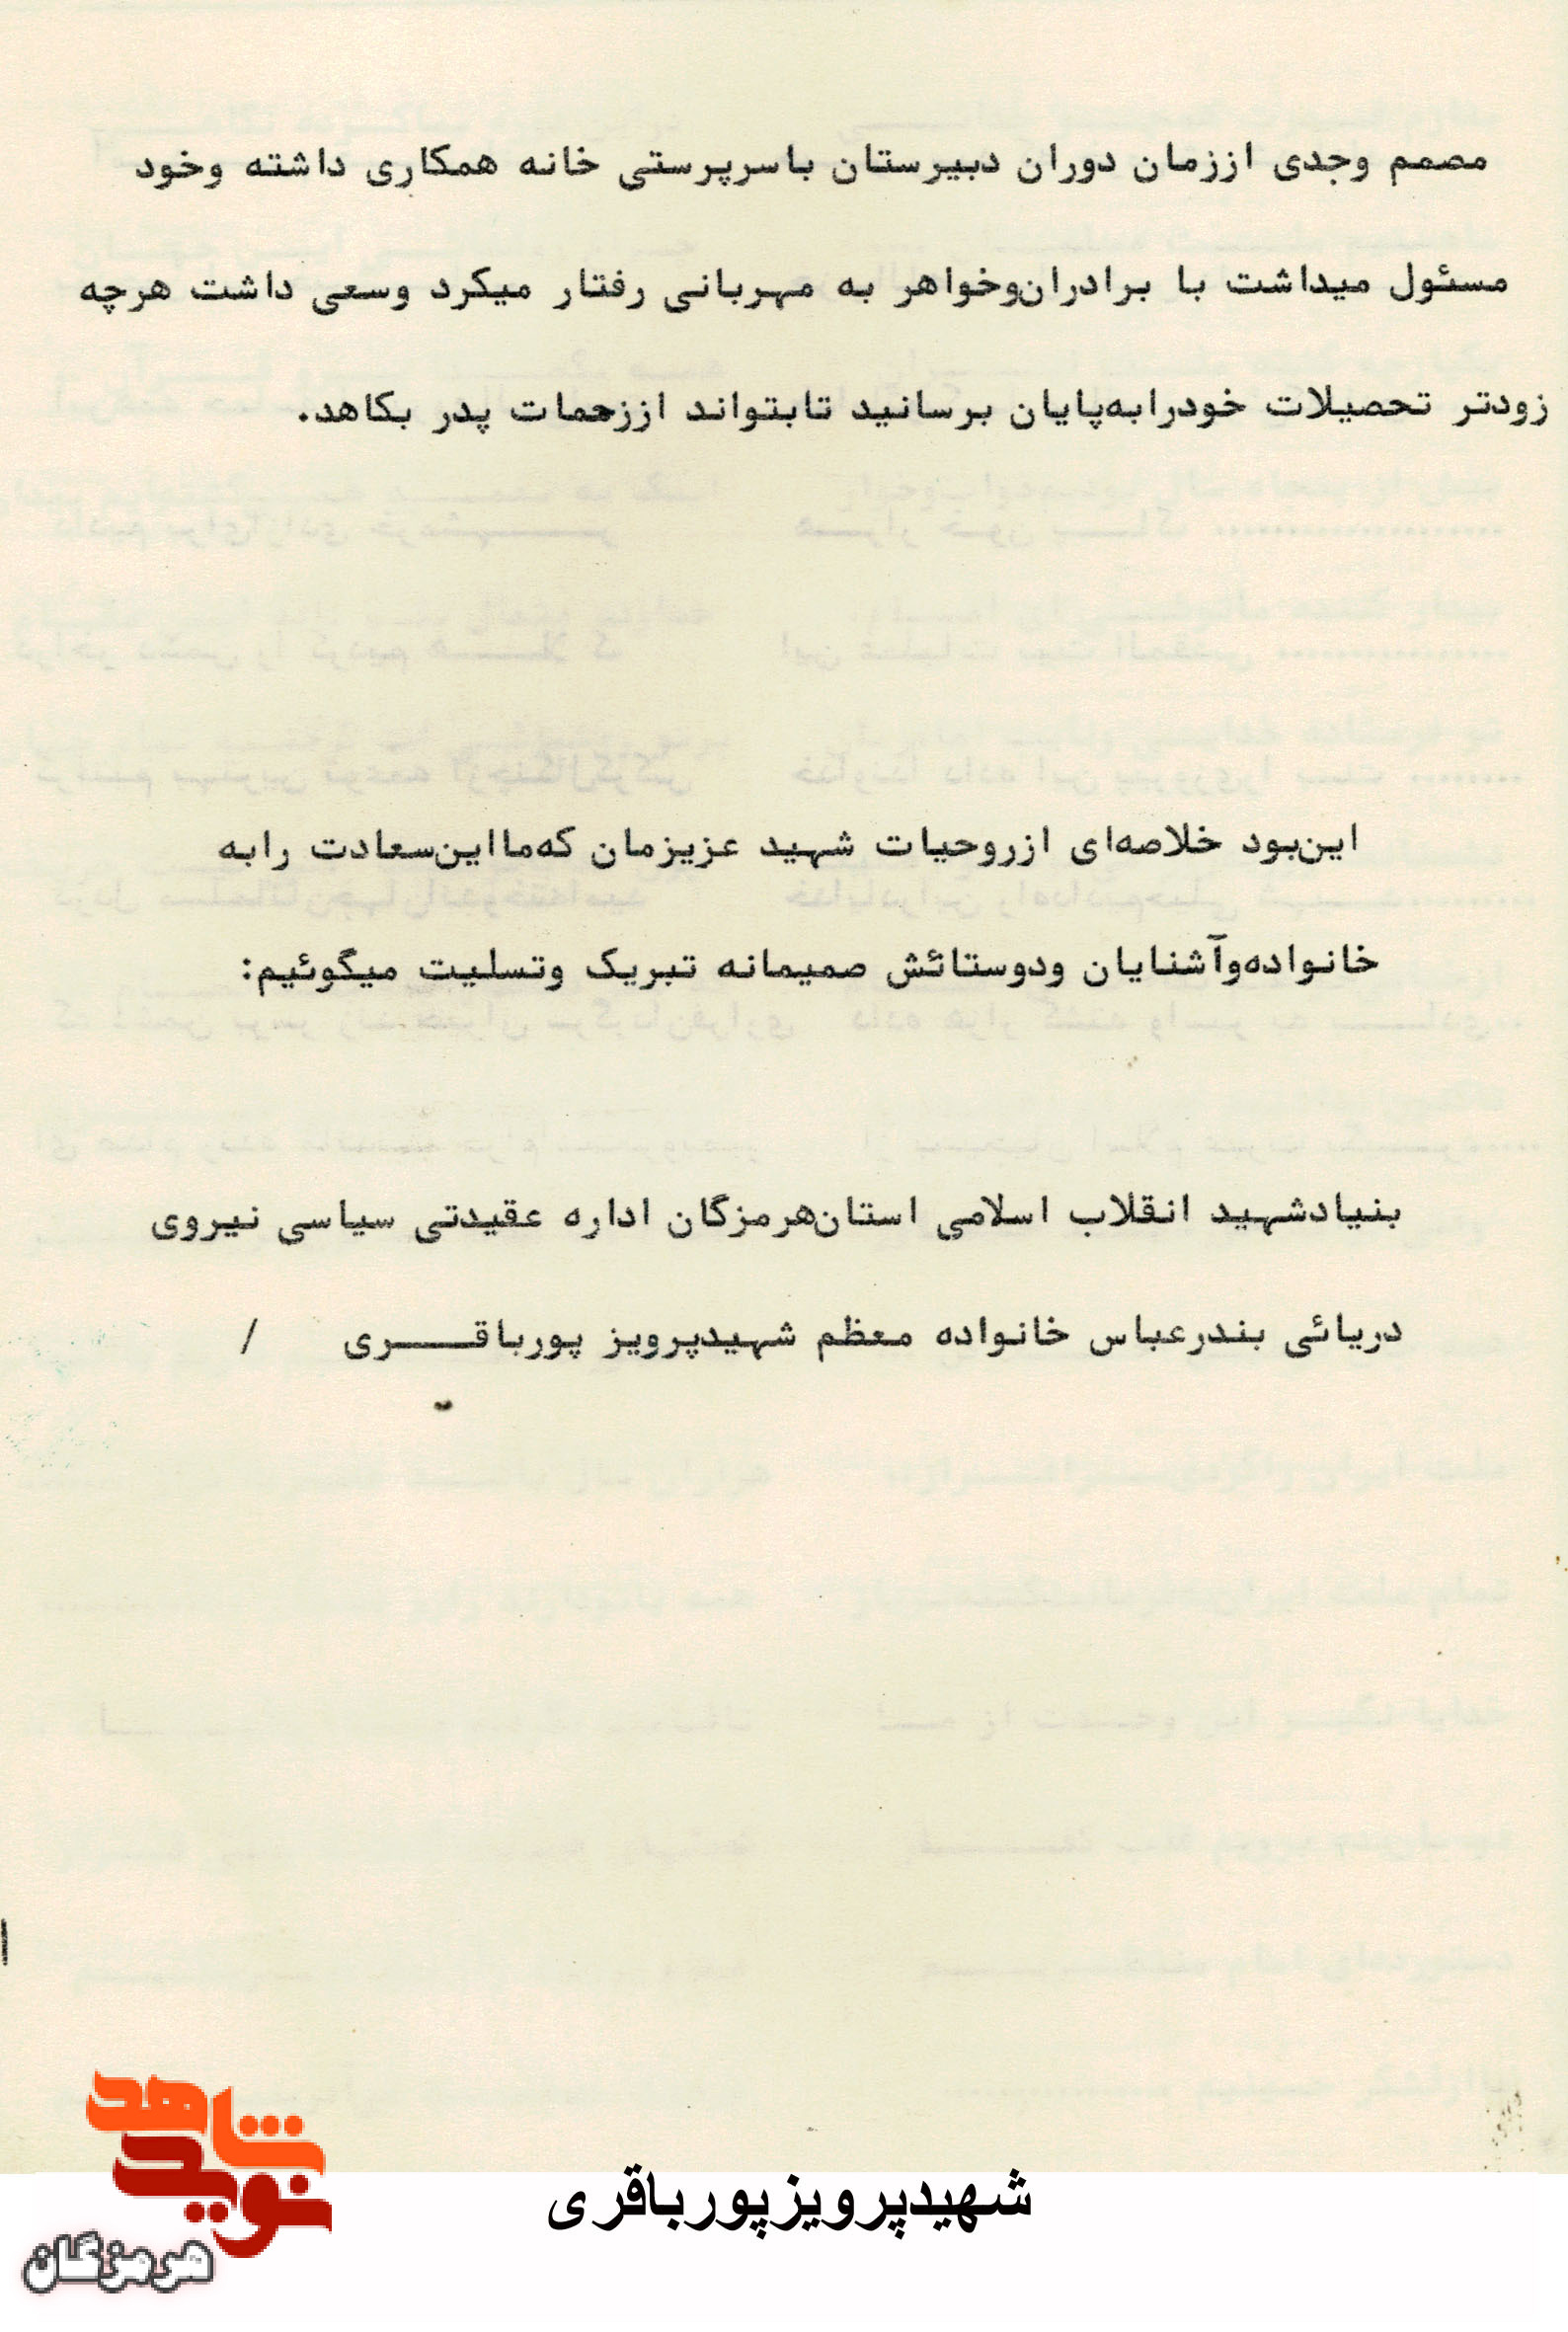 مصمم وجدی اززمان دوران دبیرستان باسرپرستی خانه همکاری داشته وخود
مسئول میداشت با برادران‌وخواهر به مهربانی رفتار میکرد وسعی داشت هرچه
زودتر تحصیلات خودرابه‌پایان برسانید تابتواند اززحمات پدر بکاهد.
این‌بود خلاصه‌ای ازروحیات شهید عزیزمان که‌مااین‌سعادت رابه
خانواده‌وآشنایان ودوستائش صمیمانه تبریک وتسلیت میگوئیم:
بنیادشهید انقلاب اسلامی استان‌هرمزگان اداره عقیدتی سیاسی نیروی
دریائی بندرعباس خانواده معظم شهیدپرویز پورباقـــــری /
شهیدپرویزپورباقری
نوید شاهد
هرمزگان